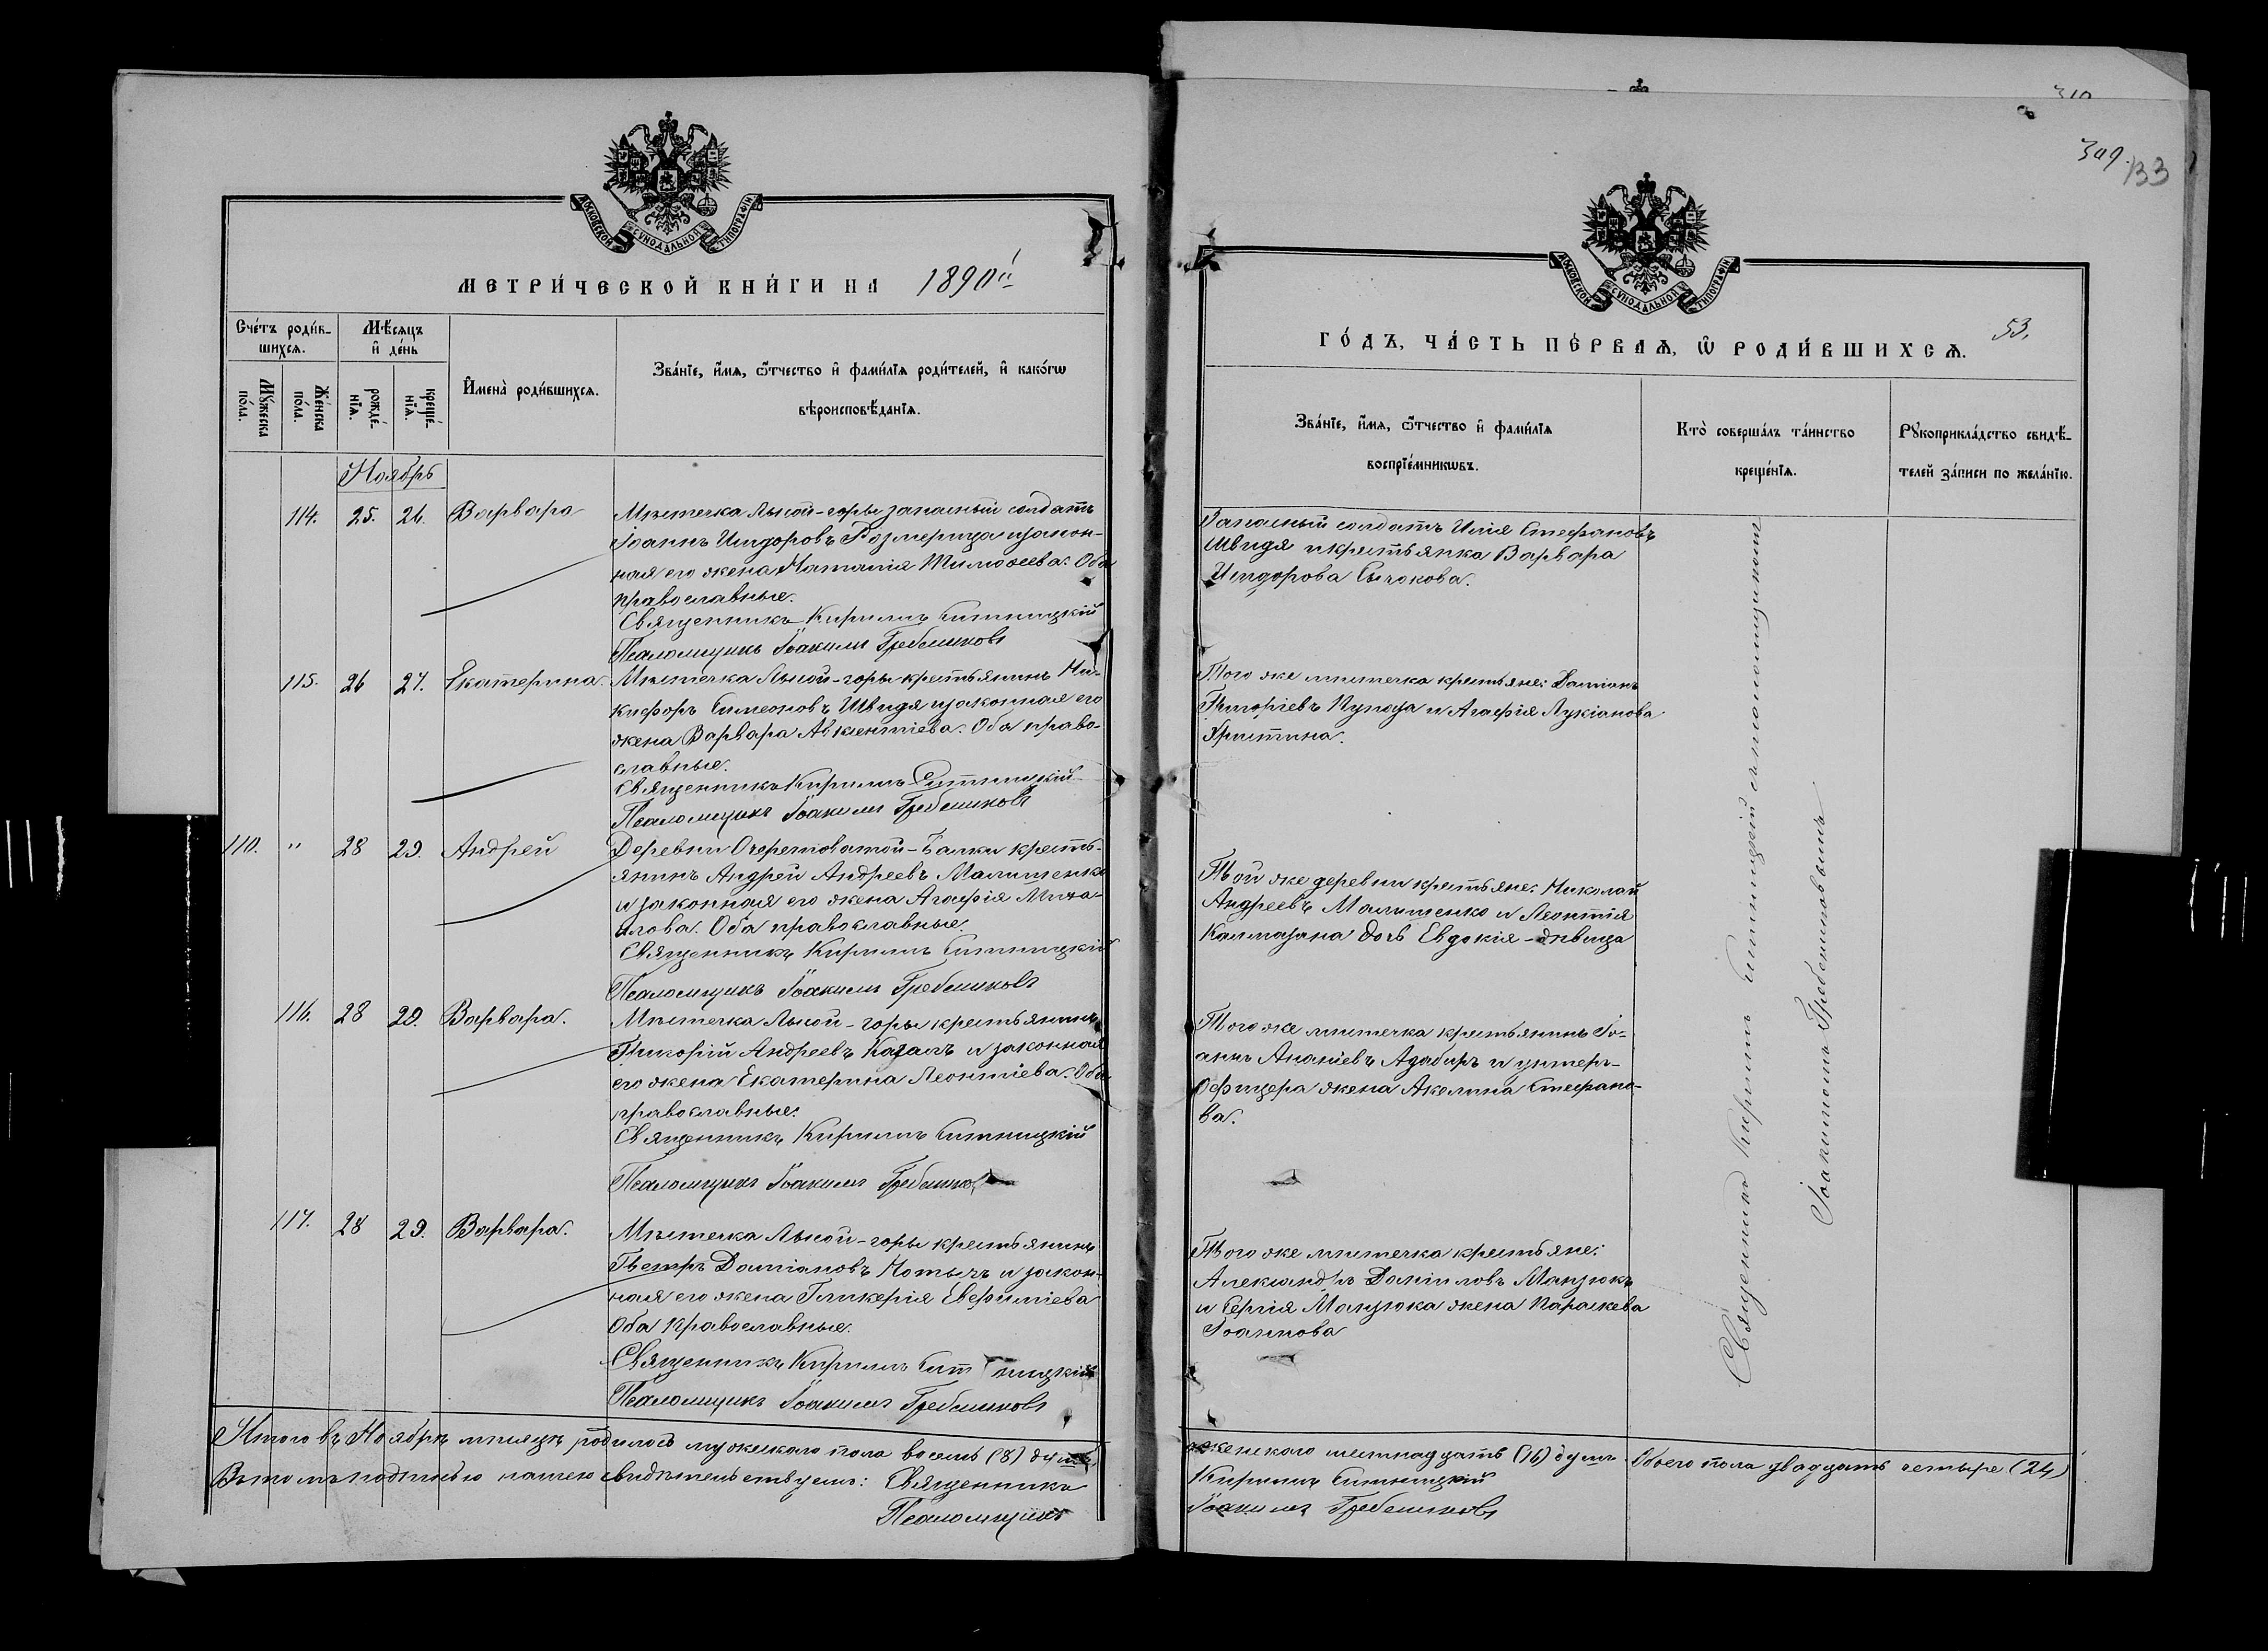 МОСКОВСКОЙ СѴНОДАЛЬНОЙ ТИПОГРАФІИ
МЕТРИ́ЧЕСКОЙ КНИ́ГИ НА 1890й
Сче́тъ роди́в-
шихсѧ.
Мѣ́сѧцъ
и҆ де́нь
И҆мена̀ роди́вшихсѧ.
Зва́нїе, и҆́мѧ, ѻ҆́тчество и҆ фами́лїѧ роди́телей, и҆ како́гѡ
вѣроисповѣ́данїѧ.
Мꙋ́жеска
по́ла.
Же́нска
по́ла.
рожде́-
нїѧ.
креще́-
нїѧ.
Ноябрь
114. 25. 26. Варвара
Мѣстечка Лысой-горы запасный солдатъ
Іоаннъ Исидоровъ Розмерица и закон-
ная его жена Наталія Тимоѳеева. Оба
православные.
Священникъ Кириллъ Ситницкій
Псаломщикъ Іоакимъ Гребешковъ
115. 26 27. Екатерина.
Мѣстечка Лысой-горы крестьянинъ Ни-
кифоръ Симеоновъ Швидя и законная его
жена Варвара Авксентіева. Оба право-
славные.
Священникъ Кириллъ Ситницкій
Псаломщикъ Іоакимъ Гребешковъ
110. " 28 29. Андрей
Деревни Очеретоватой-Балки кресть-
янинъ Андрей Андреевъ Малишенко
и законная его жена Агафія Миха-
илова. Оба православные.
Священникъ Кириллъ Ситницкій
Псаломщикъ Іоакимъ Гребешковъ
116. 28 29. Варвара.
Мѣстечка Лысой-горы крестьянинъ
Григорій Андреевъ Казатъ и законная
его жена Екатерина Леонтіева. Оба
православные.
Священникъ Кириллъ Ситницкій
Псаломщикъ Іоакимъ Гребешковъ
117. 28 29. Варвара.
Мѣстечка Лысой-горы крестьянинъ
Петръ Даміановъ и закон-
ная его жена Гликерія Евфиміева
Оба православные.
Священникъ Кириллъ Ситницкій
Псаломщикъ Іоакимъ Гребешковъ
Итого въ Ноябрѣ мѣсяцѣ родилось мужескаго пола восемь (8) душъ,
Въ томъ подписью нашею свидѣтельствуемъ: Священникъ
Псаломщикъ
310
309. 133
МОСКОВСКОЙ СѴНОДАЛЬНОЙ ТИПОГРАФІИ
ГО́ДЪ, ЧА́СТЬ ПЕ́РВАѦ, Ѡ҆ РОДИ́ВШИХСѦ. 53.
Зва́нїе, и҆́мѧ, ѻ҆́тчество и҆ фами́лїѧ
воспрїе́мникѡвъ.
Кто̀ соверша́лъ та́инство
креще́нїѧ.
Рꙋкоприкла́дство свидѣ́-
телей за́писи по жела́нїю.
Запасный солдатъ Илія Стефановъ
Швидя и крестьянка Варвара
Исидорова Сычокова.
Того же мѣстечка крестьяне: Даміанъ
Григоріевъ Купца и Агафія Лукіанова
Христина.
Той же деревни крестьяне: Николай
Андреевъ Малишенко и Леонтія
Калмазана дочь Евдокія-дѣвица
Того же мѣстечка крестьянинъ Іо-
аннъ Ананіевъ Адабиръ и унтеръ-
Офицера жена Акелина Стефано-
ва.
Того же мѣстечка крестьяне:
Александръ Даниловъ Манзюкъ
и Сергія Манзюка жена Параскева
Іоаннова
Священникъ Кириллъ Ситницкій съ псаломщикомъ
Іоакимомъ Гребешковымъ
женскаго шестнадцать (16) душъ. Обоего пола двадцать четыре (24)
Кириллъ Ситницкій
Іоакимъ Гребешковъ